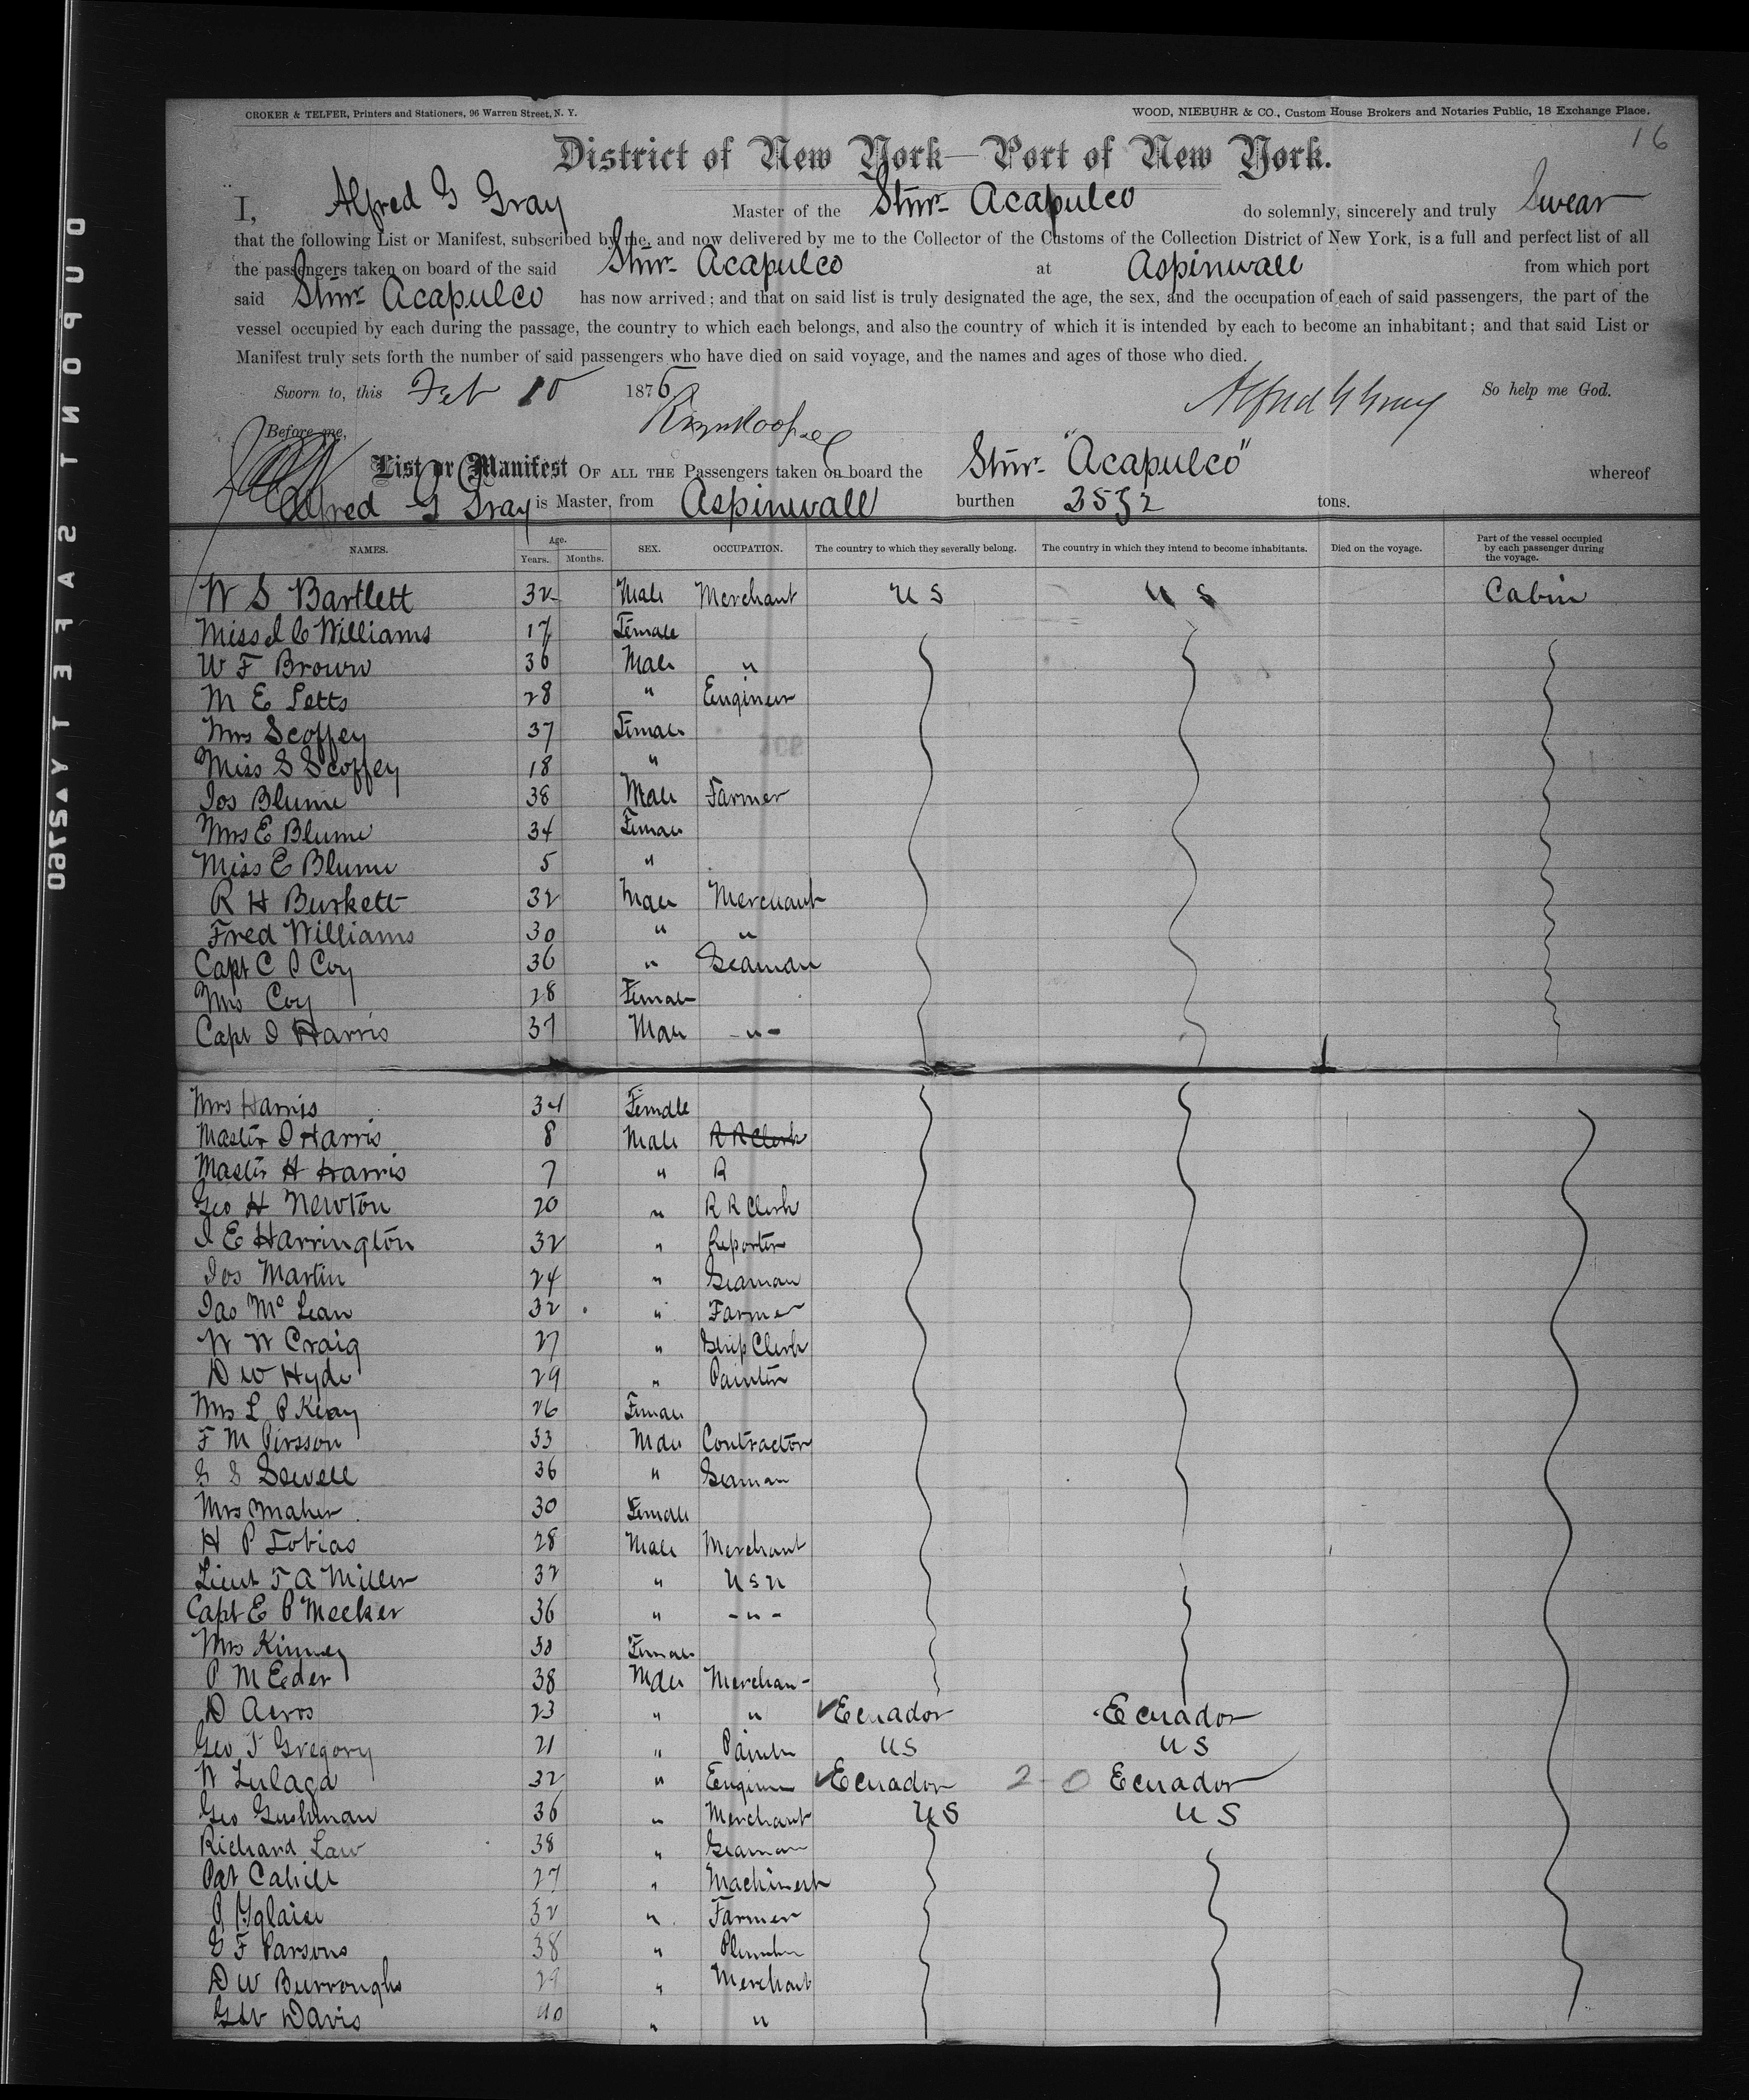 CROKER & TELFER, Printers and Stationers, 96 Warren Street, N. Y. WOOD, NIEBUHR & CO., Custom House Brokers and Notaries Public, 18 Exchange Place.
16
District of New York—Port of New York.
I, Alfred G Gray Master of the Stmr- Acapulco do solemnly, sincerely and truly Swear
that the following List or Manifest, subscribed by me, and now delivered by me to the Collector of the Customs of the Collection District of New York, is a full and perfect list of all
the passengers taken on board of the said Stmr- Acapulco at Aspinwall from which port
said Stmr- Acapulco has now arrived; and that on said list is truly designated the age, the sex, and the occupation of each of said passengers, the part of the
vessel occupied by each during the passage, the country to which each belongs, and also the country of which it is intended by each to become an inhabitant; and that said List or
Manifest truly sets forth the number of said passengers who have died on said voyage, and the names and ages of those who died.
Sworn to, this Feb 10 1876 Alfred G Gray So help me God.
Before me,
List or Manifest OF ALL THE Passengers taken on board the Stmr- "Acapulco" whereof
Alfred G Gray is Master, from Aspinwall burthen tons.
NAMES. Age. Years. Months. SEX. OCCUPATION. The country to which they severally belong. The country in which they intend to become inhabitants. Died on the voyage. Part of the vessel occupied by each passenger during the voyage.
W S Bartlett 32 Male Merchant U S U S Cabin
Miss C Williams 17 Female
W F Brown 36 Male "
M E Letts 28 " Engineer
Mrs Scoffey 37 Female
Miss S Scoffey 18 "
Jos Blume 38 Male Farmer
Mrs E Blume 34 Female
Miss E Blume 5 "
R H Burkett 32 Male Merchant
Fred Williams 30 " "
Capt C P Coy 36 " Seaman
Mrs Coy 28 Female
Capt D Harris 37 Male -"-
Mrs Harris 34 Female
Master D Harris 8 Male R R Clerk
Master H Harris 7 " R
Geo H Newton 20 " R R Clerk
J E Harrington 32 " Reporter
Jos Martin 24 " Seaman
Jas Mc Lean 32 " Farmer
W W Craig 27 " Ship Clerk
D W Hyde 29 " Painter
Mrs L P Keay 26 Female
F M Pirsson 33 Male Contractor
G S Sewell 36 " Seaman
Mrs Maher 30 Female
H P Tobias 28 Male Merchant
Lieut F A Miller 32 " U S N
Capt E P Meeker 36 " -"-
Mrs Kinney 30 Female
P M Eder 38 Male Merchan-
D 23 " " Ecuador Ecuador
Geo T Gregory 21 " Painter U S U S
W Lulaga 32 " Engineer Ecuador 2-0 Ecuador
Geo Gushman 36 " Merchant U S U S
Richard Law 38 " Seaman
Pat Cahill 27 " Machinest
32 " Farmer
G F Parsons 38 " Plumber
D W Burroughs 29 " Merchant
Davis 40 " "
DUPONT SAFETY 0572